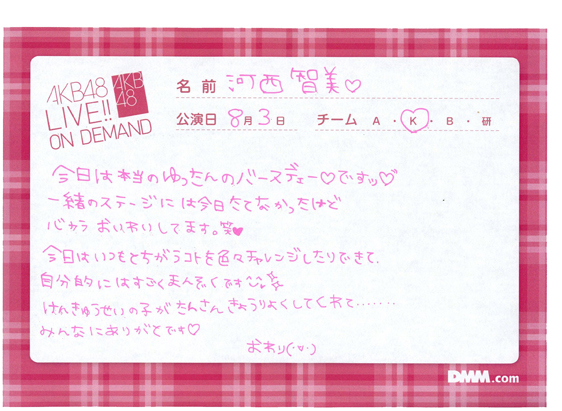 AKB48
LIVE!!
ON DEMAND
AKB
48
名前 河西智美♡
公演日 8月3日 チーム A・K・B・研
今日は本当のゆったんのバースデェー♡ですッ♡
一緒のステージには今日たてなかったけど
心から おいわいしてます。笑♥
今日はいつもとちがうコトを色々チャレンジしたりできて、
自分的にはすごくまんぞくです
けんきゅうせいの子がたんさんきょうりょくしてくれて.......
みんなにありがとです♡
おわり(･v･)
DMM.com